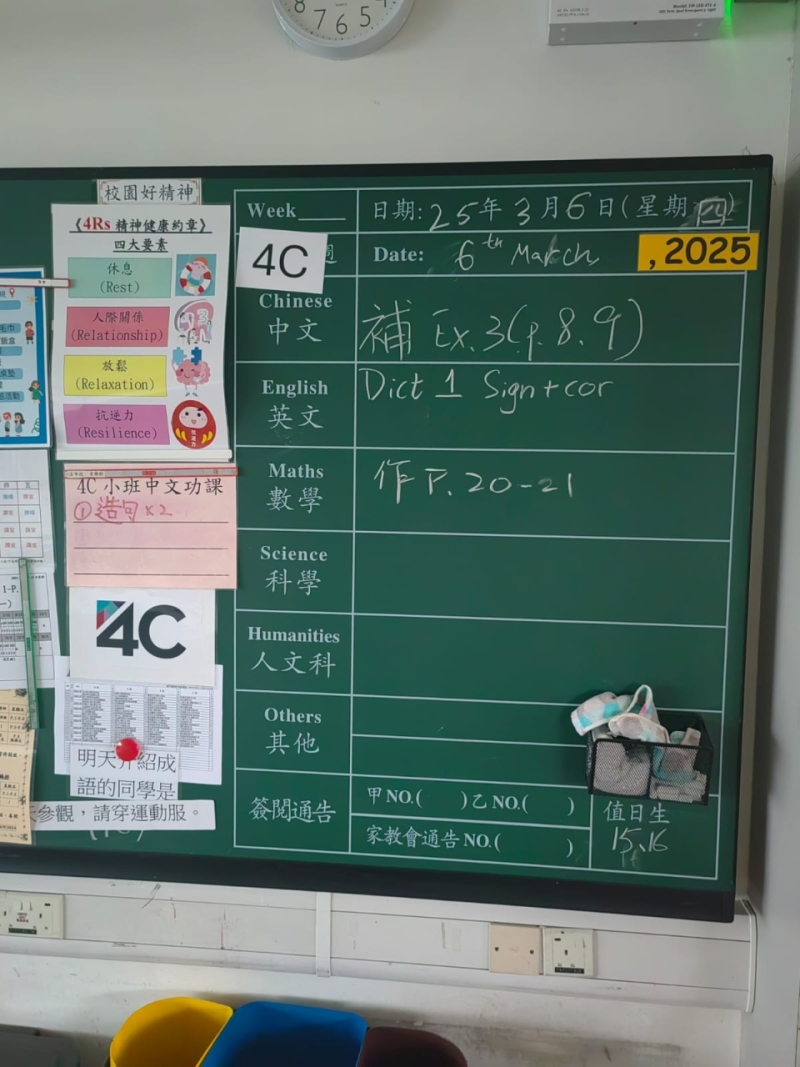 8 7 6 5
校園好精神
《4Rs 精神健康約章》
四大要素
休息
(Rest)
人際關係
(Relationship)
放鬆
(Relaxation)
抗逆力
(Resilience)
4C 小班中文功課
① 造句 x 2
4C
明天介紹成
語的同學是
參觀，請穿運動服。
Week
日期: 25年 3月 6日(星期四)
4C
週
Date: 6th March
, 2025
Chinese
中文
補 Ex.3(p.8.9)
English
英文
Dict 1 Sign+cor
Maths
數學
作 P. 20-21
Science
科學
Humanities
人文科
Others
其他
簽閱通告
甲 NO.( )乙 NO.( )
家教會通告 NO.( )
值日生
15、16